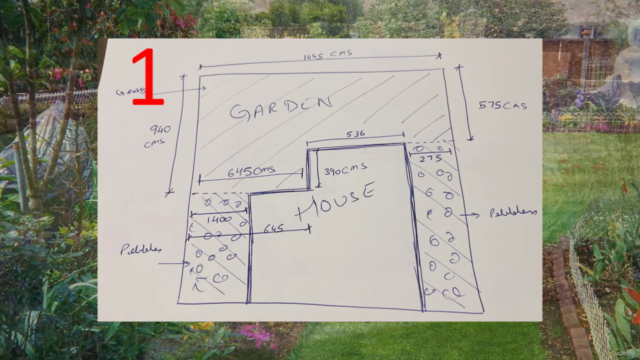 1
1445 CMS
GARDEN
940
CMS
575CMS
536
645CMS
390CMS
275
HOUSE
1400
645
Pebbles
Pebbles